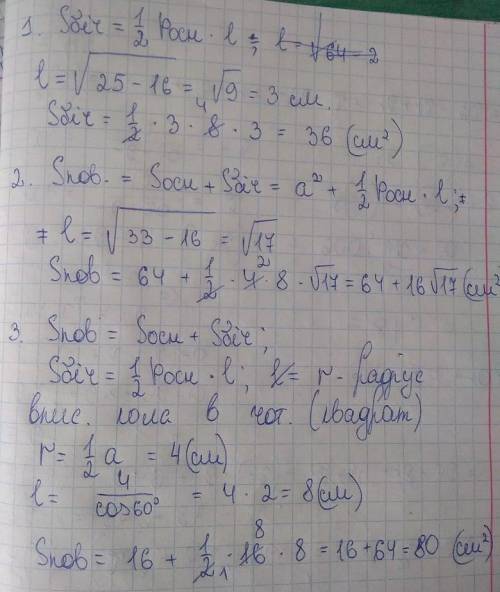 1. Sбіч = 1/2 Pосн · l ; l = √64 - 2
l = √25 - 16 = √9 = 3 см.
Sбіч = 1/2 · 3 · 8 4 · 3 = 36 (см²)
2. Sпов. = Sосн + Sбіч = a² + 1/2 Pосн · l ; =
= l = √33 - 16 = √17
Sпов = 64 + 1/2 · 4 2 · 8 · √17 = 64 + 16√17 (см²
3. Sпов = Sосн + Sбіч ;
Sбіч = 1/2 Pосн · l ; = r - радіус
впис. кола в чот. (квадрат)
r = 1/2 a = 4 (см)
l = 4/cos60° = 4 · 2 = 8 (см)
Sпов = 16 + 1/2 1 · 16 8 · 8 = 16 + 64 = 80 (см²)